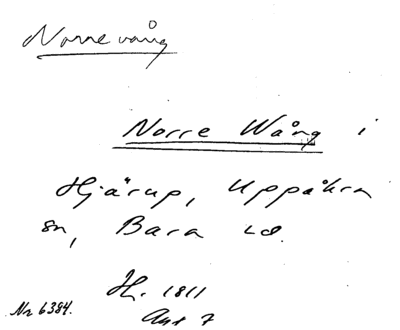 Norrevång
Norre Wång i
Hjärup, Uppåkra
sn, Bara hd.
H. 1811
Akt 7
Nr 6384.